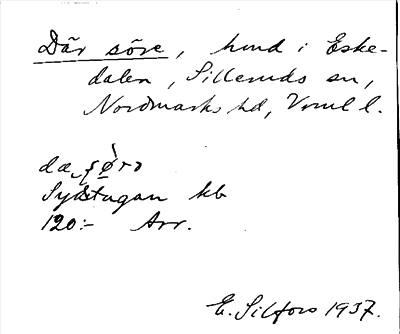 Där söre, hmd i Eske-
dalen, Silleruds sn,
Nordmarks hd, Vrml l.
dæ, sø̀rə
Sydstugan kb
120:- Arr.
E. Silfors 1937.